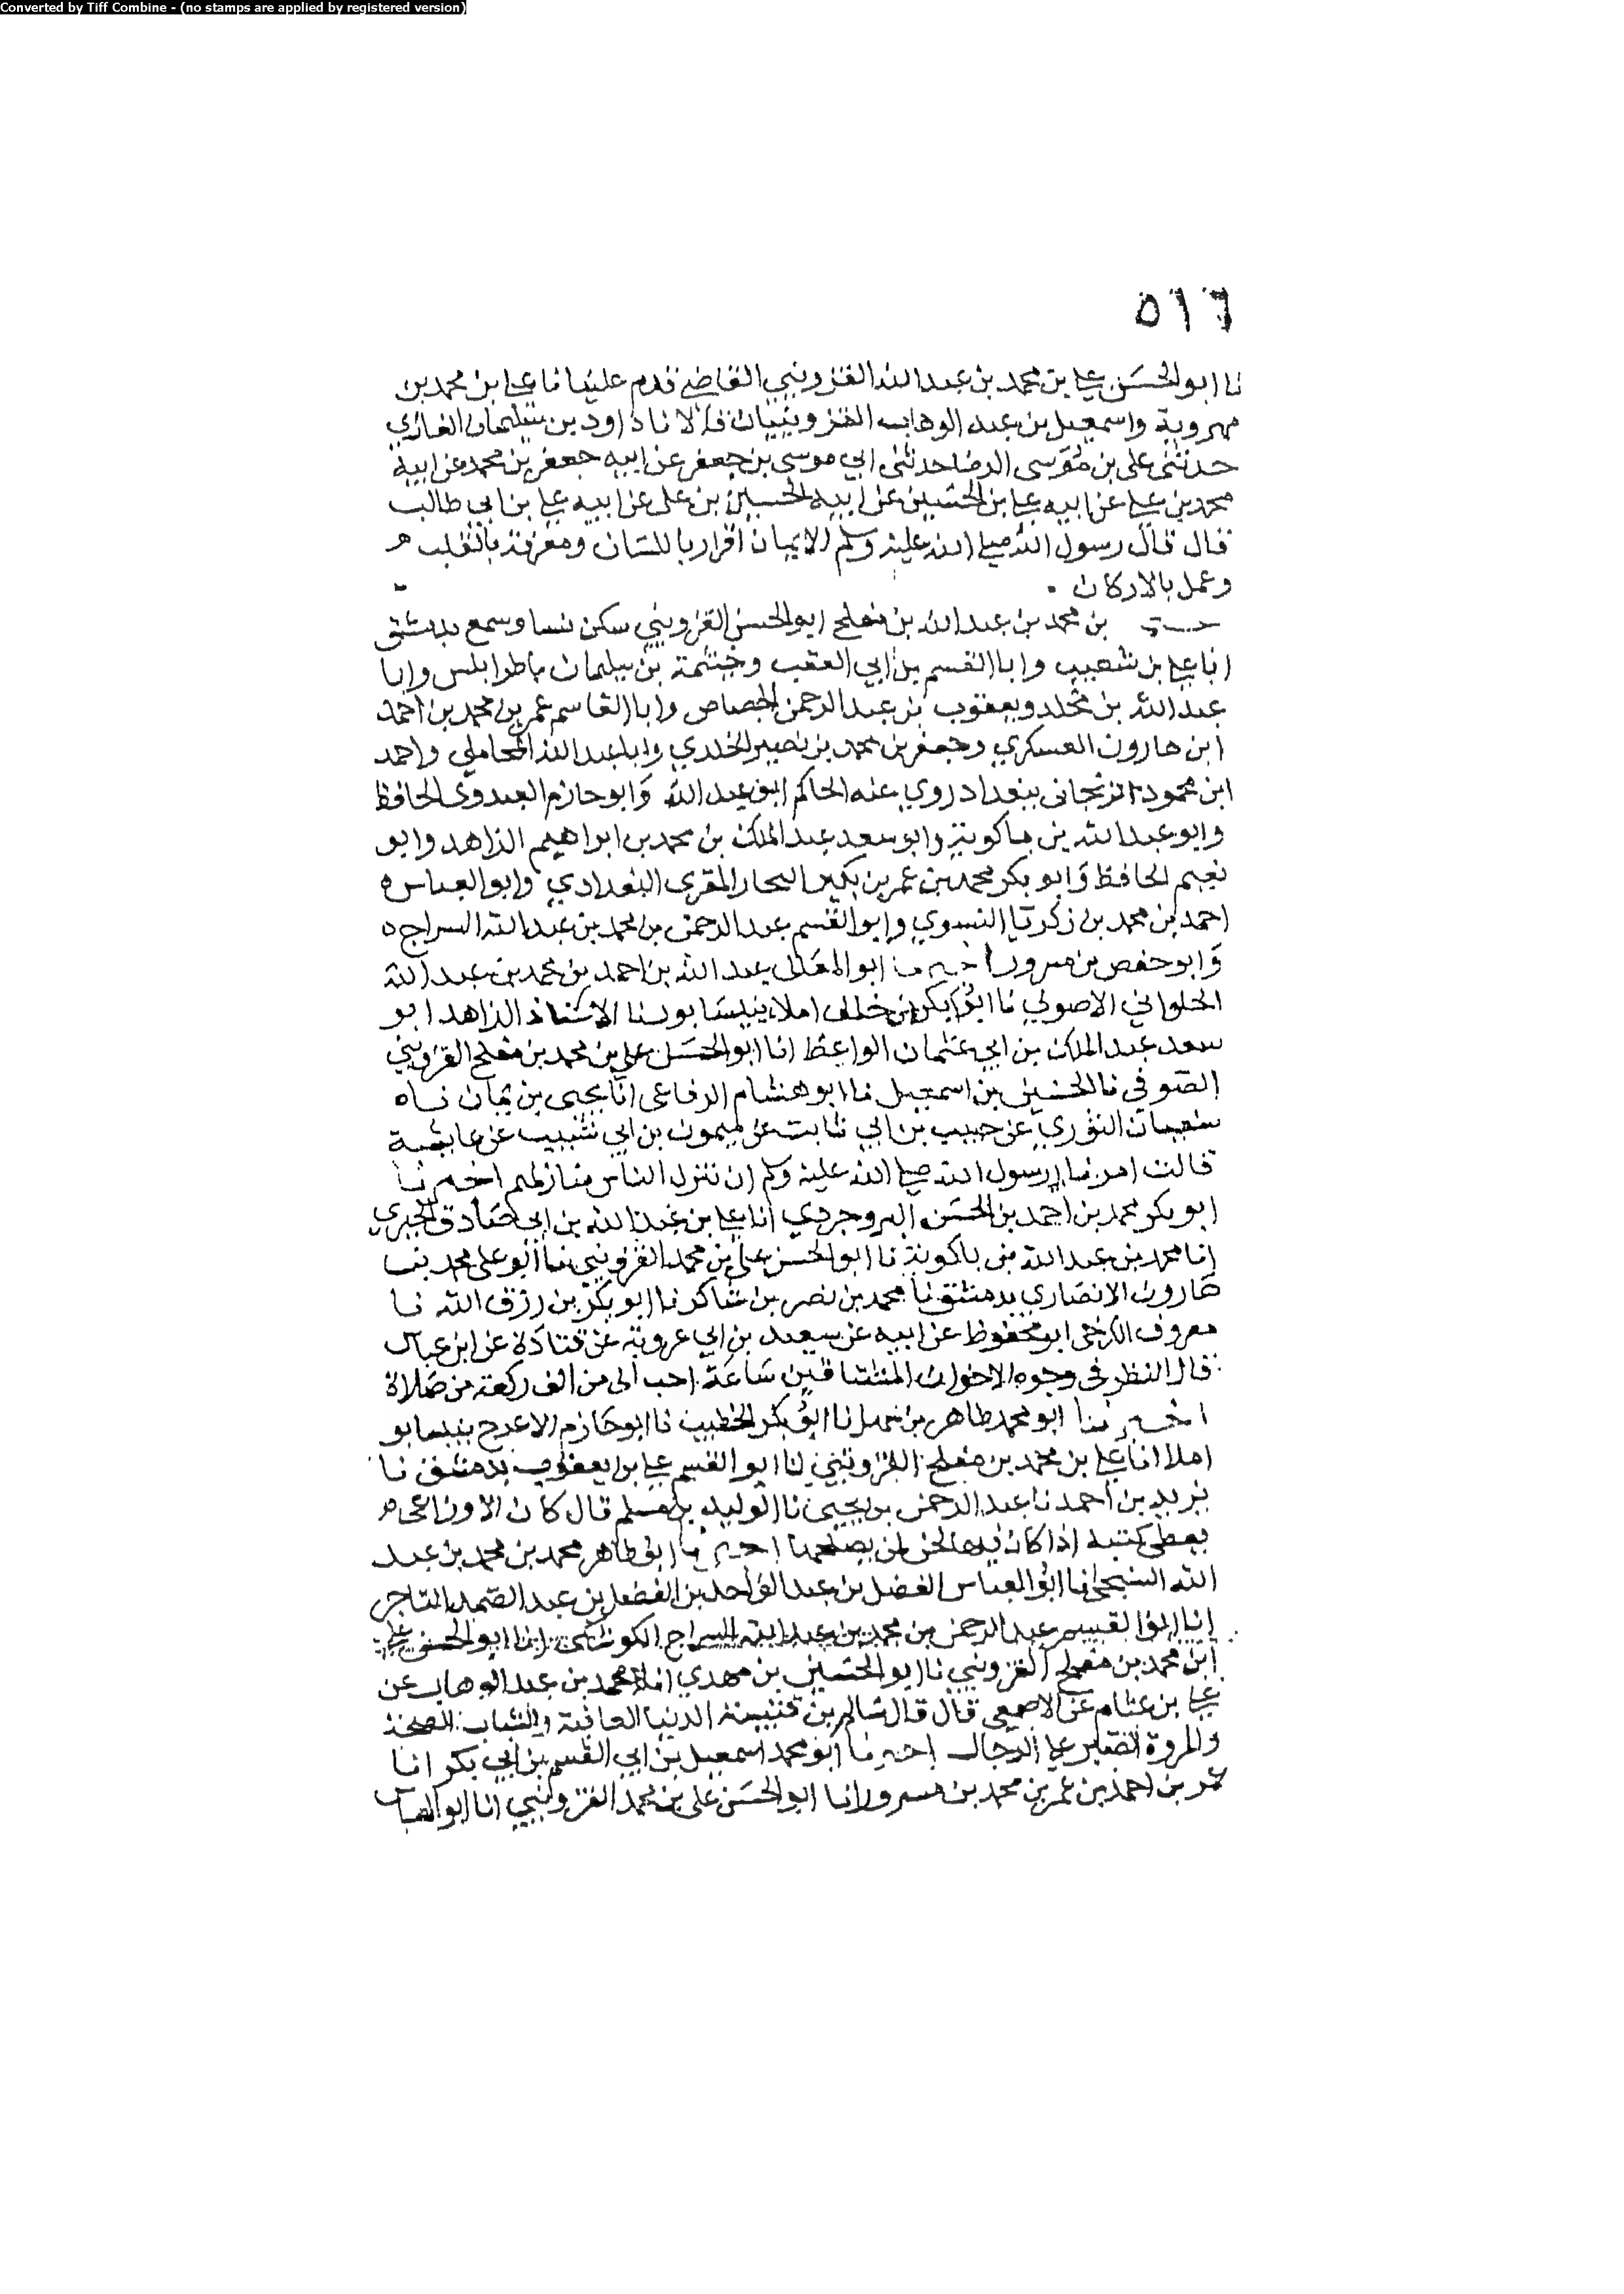 Converted by Tiff Combine - (no stamps are applied by registered version)
٥١٦
نا ابو الحسن علي بن محمد بن عبد الله القزويني القاضي قدم علينا نا علي بن محمد بن
مهروية واسمعيل بن عبد الوهاب القزوينيان قالا نا داود بن سليمان الغازي
حدثني علي بن موسى الرضا حدثني ابي موسى بن جعفر عن ابيه جعفر بن محمد عن ابيه
محمد بن علي عن ابيه علي بن الحسين عن ابيه الحسين بن علي عن ابيه علي بن ابي طالب
قال قال رسول الله صلى الله عليه وسلم الايمان اقرار باللسان ومعرفة بالقلب
وعمل بالاركان
بن محمد بن عبد الله بن مفلح ابو الحسن القزويني سكن نسا وسمع بدمشق
ابا علي بن شعيب وابا القسم بن ابي العقب وخيثمة بن سليمان باطرابلس وابا
عبد الله بن مخلد ويعقوب بن عبد الرحمن الجصاص وابا القاسم عمر بن محمد بن احمد
ابن هارون العسكري وجعفر بن محمد بن نصير الخلدي وابا عبد الله المحاملي واحمد
ابن محمود الزنجاني ببغداد روي عنه الحاكم ابو عبد الله وابو حازم العبدوى الحافظ
وابو عبد الله بن باكوية وابو سعد عبد الملك بن محمد بن ابراهيم الزاهد وابو
نعيم الحافظ وابو بكر محمد بن عمر بن بكير النجار المقرى البغدادي وابو العباس
احمد بن محمد بن زكريا النسوي وابو القسم عبد الرحمن بن محمد بن عبد الله السراج
وابو حفص بن مسرور اخبرنا ابو المعالى عبد الله بن احمد بن محمد بن عبد الله
الحلواني الاصولي نا ابو بكر بن خلف املا بنيسابور نا الاستاذ الزاهد ابو
سعد عبد الملك بن ابي عثمان الواعظ انا ابو الحسن علي بن محمد بن مفلح القزويني
الصوفي نا الحسين بن اسمعيل نا ابو هشام الرفاعي انا يحيى بن يمان نا
سفيان الثوري عن حبيب بن ابي ثابت عن ميمون بن ابي شبيب عن عايشة
قالت امرنا رسول الله صلى الله عليه وسلم ان ننزل الناس منازلهم اخبرنا
ابو بكر محمد بن احمد بن الحسن البروجردي انا علي بن عبد الله بن ابي صادق الحيري
انا محمد بن عبد الله بن باكوية نا ابو الحسن علي بن محمد القزويني نا ابو على محمد بن
هارون الانصاري بدمشق نا محمد بن نصر بن شاكر نا ابو بكر بن رزق الله نا
معروف الكرخي ابو محفوظ عن ابيه عن سعيد بن ابي عروبة عن قتادة عن ابن عباس
قال النظر في وجوه الاخوان المشتاقين ساعة احب الى من الف ركعة من صلاة
اخبرنا ابو محمد طاهر بن سهل نا ابو بكر الخطيب نا ابو حازم الاعرج بنيسابو
املا انا علي بن محمد بن مفلح القزويني نا ابو القسم علي بن يعقوب بدمشق نا
يزيد بن احمد نا عبد الرحمن بن يحيى نا الوليد بن مسلم قال كان الاوزاعي
يعطي كتبه اذا كان فيها لحن لمن يصلحها اخبرنا ابو طاهر محمد بن محمد بن عبد
الله السنجي انا ابو العباس الفضل بن عبد الواحد بن الفضل بن عبد الصمد التاجر
انا ابو القسم عبد الرحمن بن محمد بن عبد الله السراج انا ابو الحسن علي
ابن محمد بن مفلح القزويني نا ابو الحسين بن مهدي محمد بن عبد الوهاب عن
علي بن عثام عن الاصمعي قال قال سالم بن قتيبة الدنيا العافية والشباب الصحة
والمروة الصبر على الرجال اخبرنا ابو محمد اسمعيل بن ابي القسم بن ابي بكر انا
عمر بن احمد بن عمر بن محمد بن مسرور انا ابو الحسن علي بن محمد القزويني انا ابو العباس